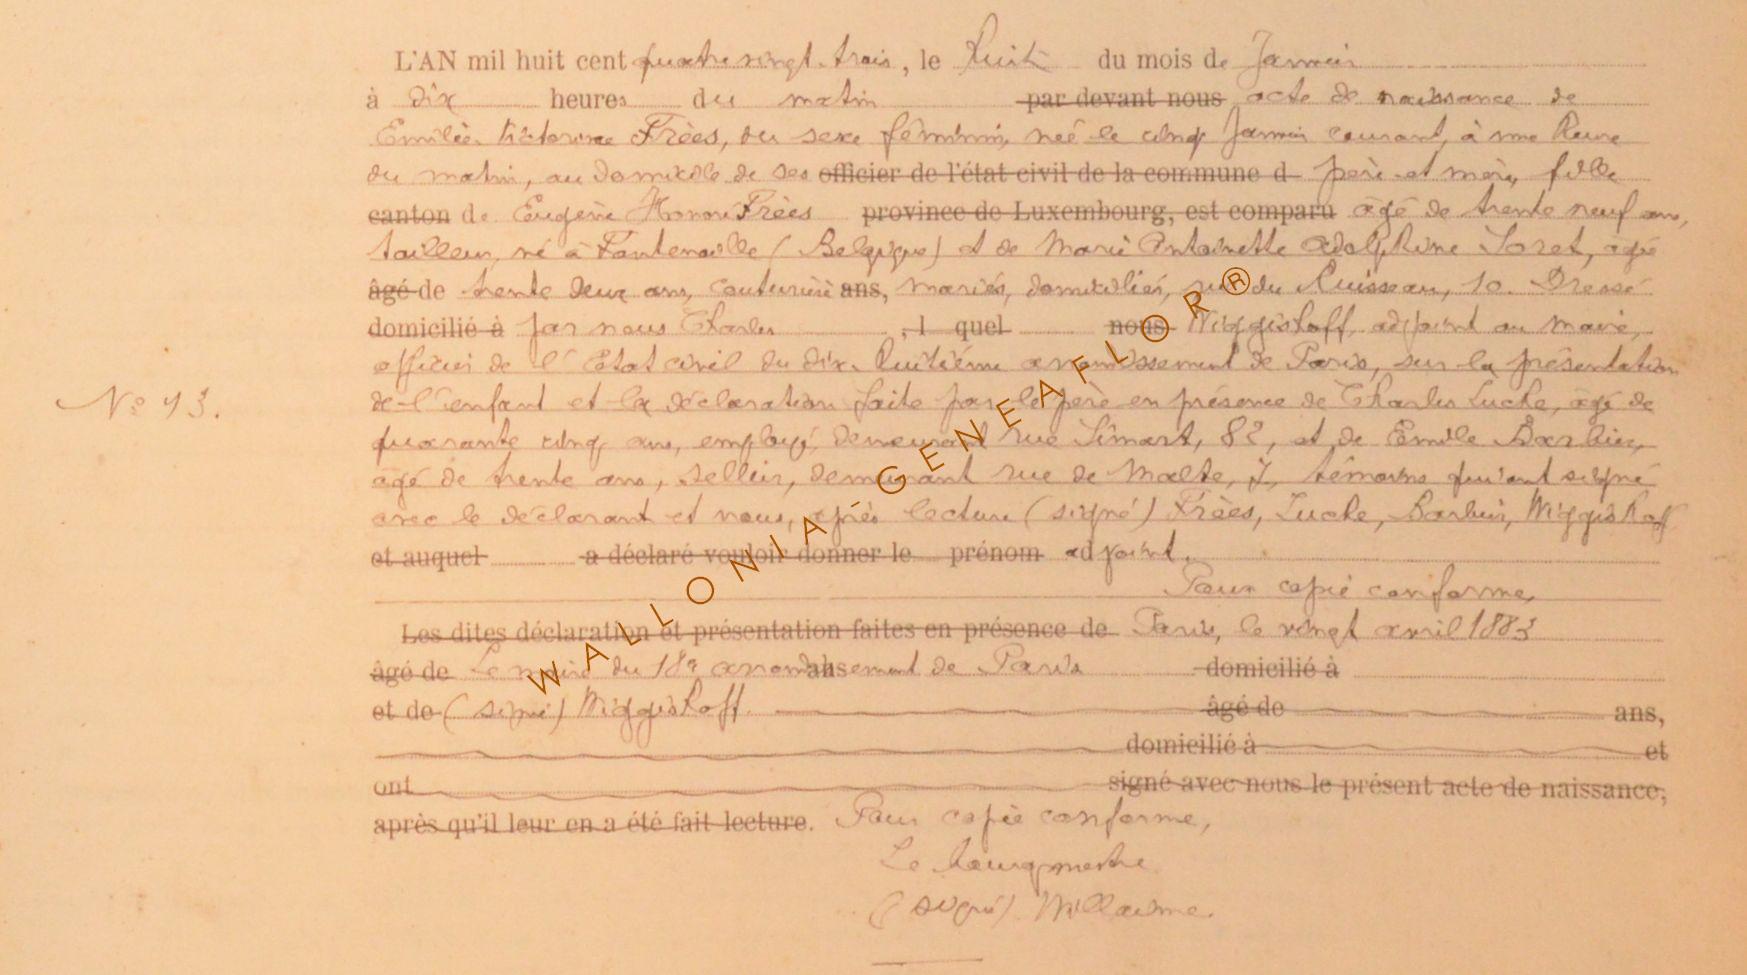 L'AN mil huit cent quatre vingt-trois, le huit du mois de Janvier
à dix heures du matin par devant nous acte de naissance de
Emilie Victorine Frèes, du sexe féminin, née le cinq Janvier courant, à une heure
du matin, au domicile de ses officier de l'état civil de la commune d père et mère, fille
canton de Eugène Honoré Frèes province de Luxembourg, est comparu âgé de trente neuf ans,
tailleur, né à Fontenoille (Belgique) et de Marie Antoinette Adolphine Soret, âgée
âgé de trente deux ans, couturière ans, mariés, domiciliés, rue du Ruisseau, 10. Dressé
domicilié à par nous Charles , l quel nous Wiggishoff, adjoint au maire,
officier de l'Etat civil du dix-huitième arrondissement de Paris, sur la présentation
de l'enfant et la déclaration faite par le père en présence de Charles Luche, âgé de
N° 13.
quarante cinq ans, employé, demeurant rue Simart, 82, et de Emile Barbier,
âgé de trente ans, sellier, demeurant rue de Malte, 7, témoins qui ont signé
avec le déclarant et nous, après lecture (signé) Frèes, Luche, Barbier, Wiggishoff
et auquel a déclaré vouloir donner le prénom adjoint.
Pour copie conforme,
Les dites déclaration et présentation faites en présence de Paris, le vingt avril 1883
âgé de Le maire du 18e arrondissement de Paris domicilié à
et de (signé) Wiggishoff. âgé de ans,
domicilié à et
ont signé avec nous le présent acte de naissance,
après qu'il leur en a été fait lecture. Pour copie conforme,
Le bourgmestre
(signé) Willaime.
WALLONIA-GENEAFLOR®